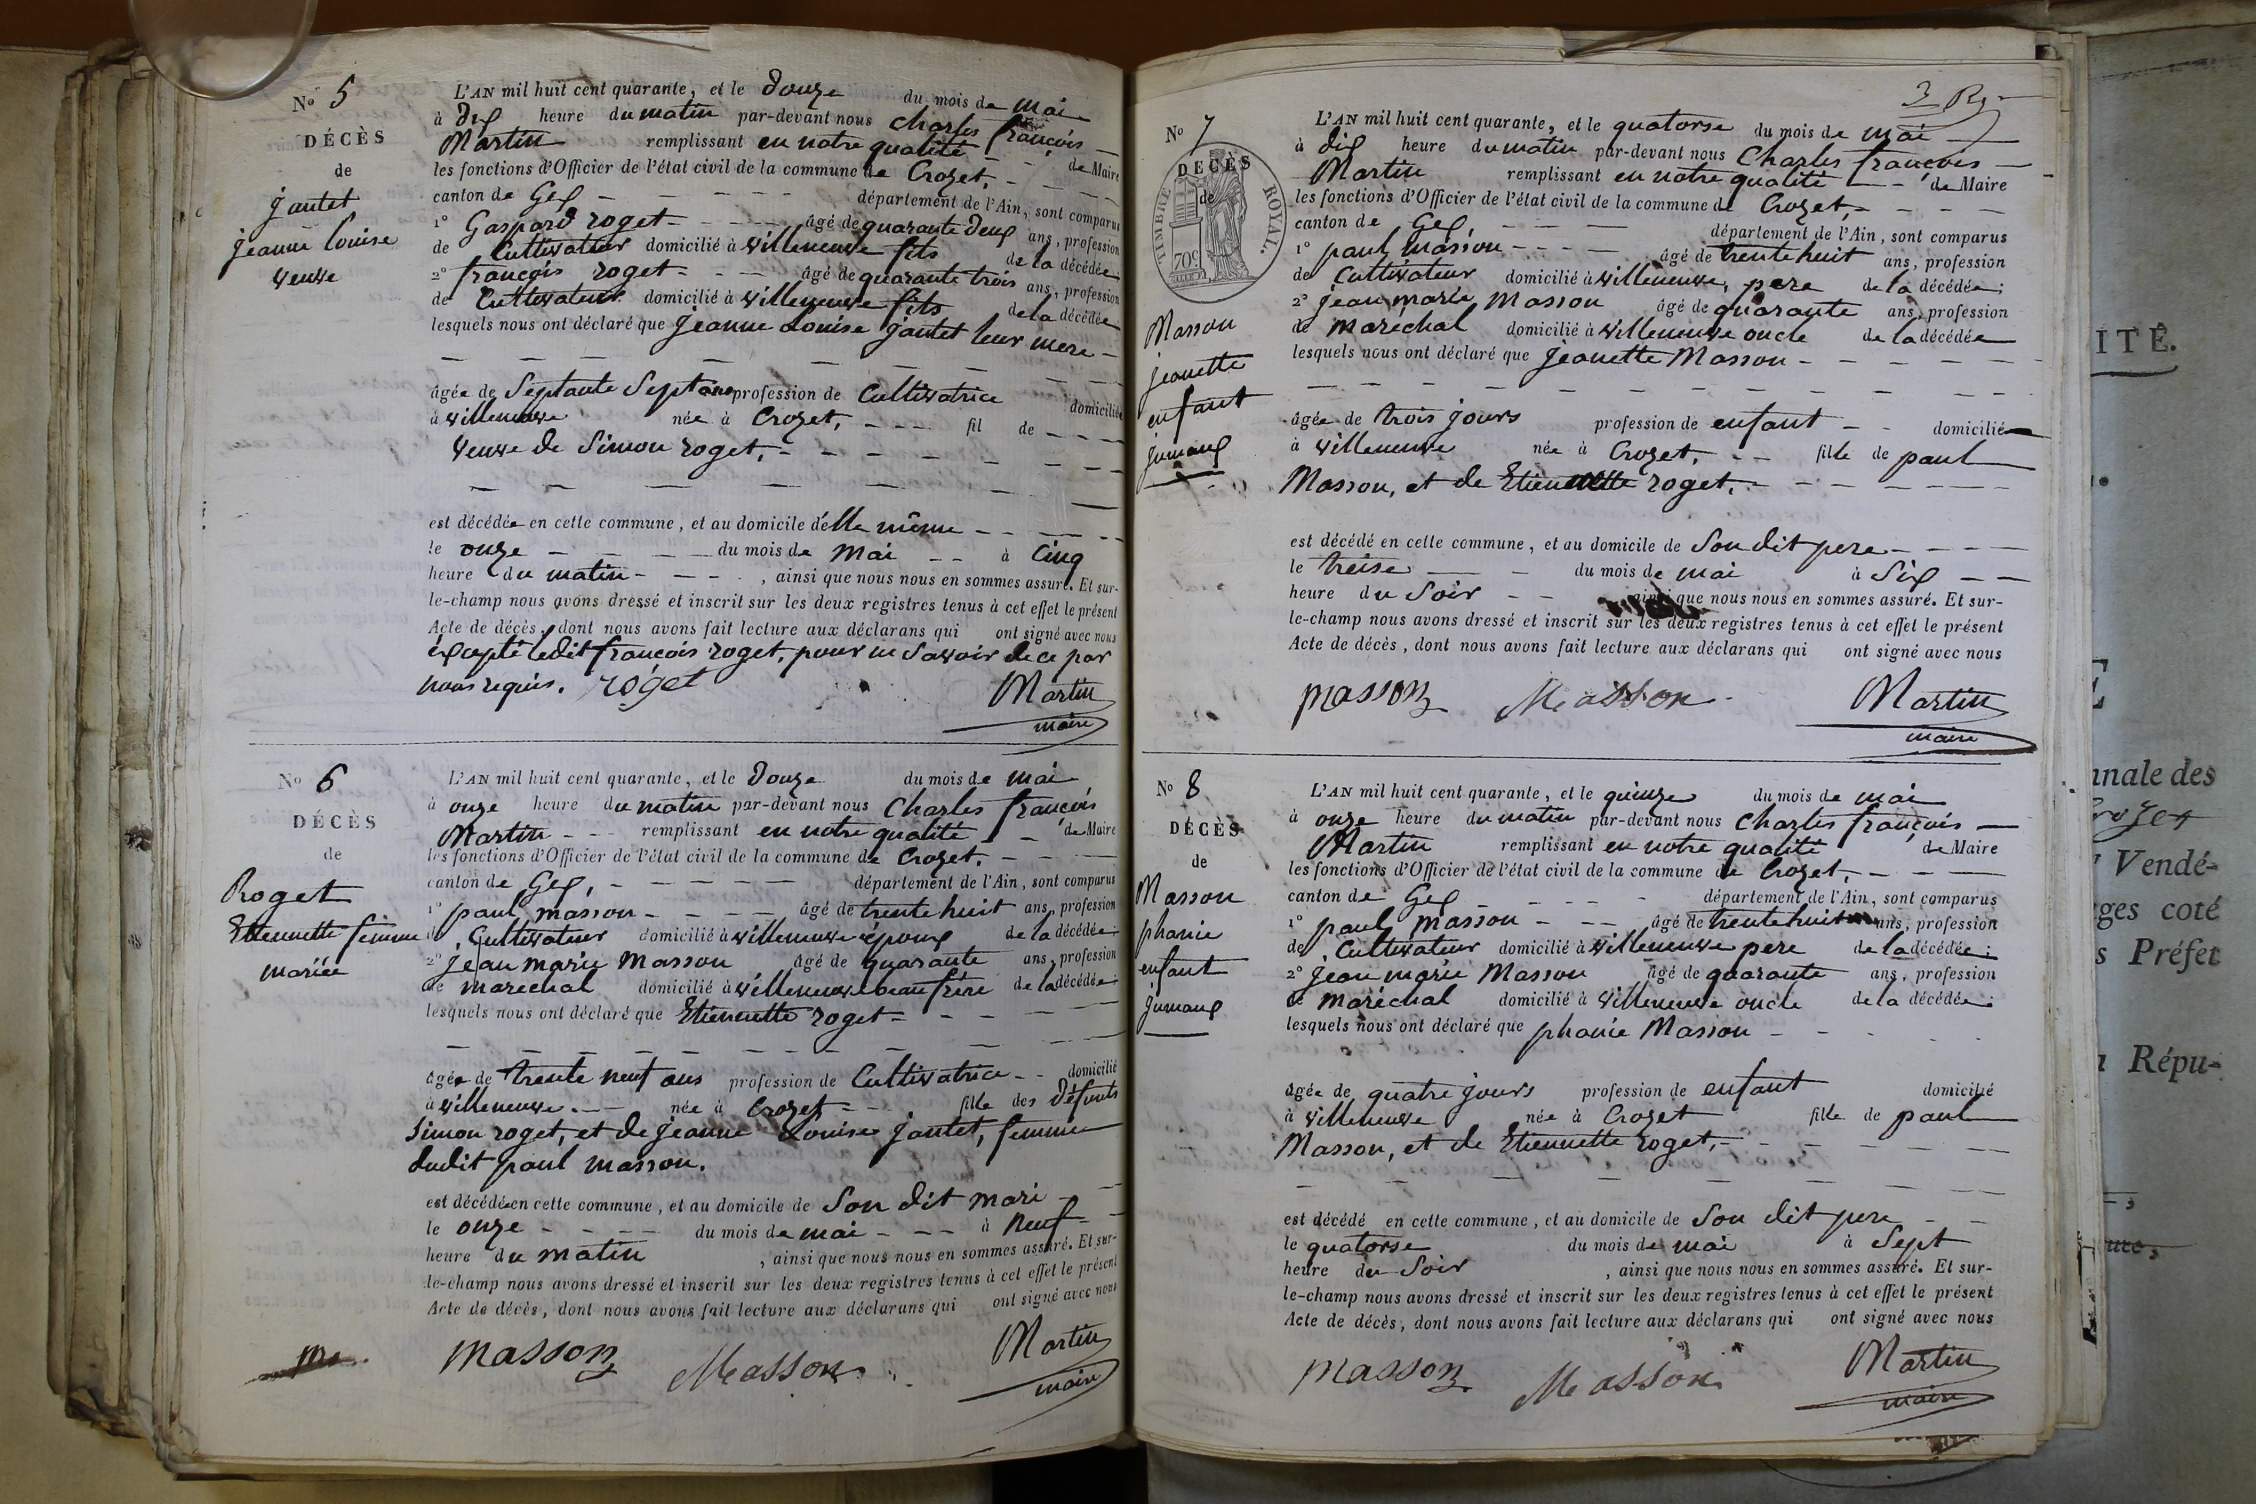 No 5
DÉCÈS
de
jantet
jeanne louise
veuve
L'AN mil huit cent quarante, et le douze du mois de mai
à dix heure du matin par-devant nous charles françois
Martin remplissant en notre qualité de Maire
les fonctions d'Officier de l'état civil de la commune de Crozet,
canton de Gex département de l'Ain, sont comparus
1° Gaspard roget âgé de quarante deux ans, profession
de Cultivateur domicilié à villeneuve fils de la décédée
2° françois roget âgé de quarante trois ans, profession
de Cultivateur domicilié à villeneuve fils de la décédée
lesquels nous ont déclaré que jeanne Louise jantet leur mere
âgée de Septante Sept ans profession de Cultivatrice domiciliée
à villeneuve née à Crozet, fil de
veuve de Simon roget,
est décédée en cette commune, et au domicile d'elle même
le onze du mois de Mai à Cinq
heure du matin, ainsi que nous nous en sommes assuré. Et sur-
le-champ nous avons dressé et inscrit sur les deux registres tenus à cet effet le présent
Acte de décès, dont nous avons fait lecture aux déclarans qui ont signé avec nous
éxcepté ledit françois roget, pour ne savoir de ce par
nous requis. roget Martin
maire
No 6
DÉCÈS
de
Roget
Etiennette femme
mariée
L'AN mil huit cent quarante, et le douze du mois de mai
à onze heure du matin par-devant nous Charles françois
Martin remplissant en notre qualité de Maire
les fonctions d'Officier de l'état civil de la commune de Crozet.
canton de Gex, département de l'Ain, sont comparus
1° paul masson âgé de trente huit ans, profession
de Cultivateur domicilié à villeneuve époux de la décédée
2° jean marie Masson âgé de quarante ans, profession
de marechal domicilié à villeneuve beau frère de la décédée
lesquels nous ont déclaré que Etiennette roget
âgée de trente neuf ans profession de Cultivatrice domicilié
à villeneuve née à Crozet fille des défunts
Simon roget, et de jeanne Louise jantet, femme
dudit paul masson.
est décédée en cette commune, et au domicile de Son dit mari
le onze du mois de mai à Neuf
heure du matin, ainsi que nous nous en sommes assuré. Et sur-
le-champ nous avons dressé et inscrit sur les deux registres tenus à cet effet le présent
Acte de décès, dont nous avons fait lecture aux déclarans qui ont signé avec nous
masson Masson Martin
maire
No 7
DECÈS
de
TIMBRE ROYAL.
70c
Masson
jeanette
enfant
jumaux
L'AN mil huit cent quarante, et le quatorse du mois de mai
à dix heure du matin par-devant nous Charles françois
Martin remplissant en notre qualité de Maire
les fonctions d'Officier de l'état civil de la commune de Crozet,
canton de Gex département de l'Ain, sont comparus
1° paul Masson âgé de trente huit ans, profession
de Cultivateur domicilié à villeneuve, pere de la décédée;
2° jean marie Masson âgé de quarante ans, profession
de maréchal domicilié à villeneuve oncle de la décédée
lesquels nous ont déclaré que jeanette Masson
âgée de trois jours profession de enfant domicilié
à villeneuve née à Crozet. fille de paul
Masson, et de Etiennette roget.
est décédé en cette commune, et au domicile de Son dit pere
le treise du mois de mai à Six
heure du Soir ainsi que nous nous en sommes assuré. Et sur-
le-champ nous avons dressé et inscrit sur les deux registres tenus à cet effet le présent
Acte de décès, dont nous avons fait lecture aux déclarans qui ont signé avec nous
masson Masson Martin
maire
No 8
DÉCÈS
de
Masson
phanie
enfant
jumaux
L'AN mil huit cent quarante, et le quinze du mois de mai
à onze heure du matin par-devant nous Charles françois
Martin remplissant en notre qualité de Maire
les fonctions d'Officier de l'état civil de la commune de Crozet,
canton de Gex département de l'Ain, sont comparus
1° paul masson âgé de trente huit ans, profession
de Cultivateur domicilié à villeneuve pere de la décédée;
2° jean marie Masson âgé de quarante ans, profession
de maréchal domicilié à villeneuve oncle de la décédée;
lesquels nous ont déclaré que phanie Masson
âgée de quatre jours profession de enfant domicilié
à villeneuve née à Crozet fille de paul
Masson, et de Etiennette roget,
est décédé en cette commune, et au domicile de Son dit pere
le quatorse du mois de mai à Sept
heure du Soir, ainsi que nous nous en sommes assuré. Et sur-
le-champ nous avons dressé et inscrit sur les deux registres tenus à cet effet le présent
Acte de décès, dont nous avons fait lecture aux déclarans qui ont signé avec nous
masson Masson Martin
maire
ITÉ.
nnale des
Vendé-
ges coté
s Préfet
Répu-